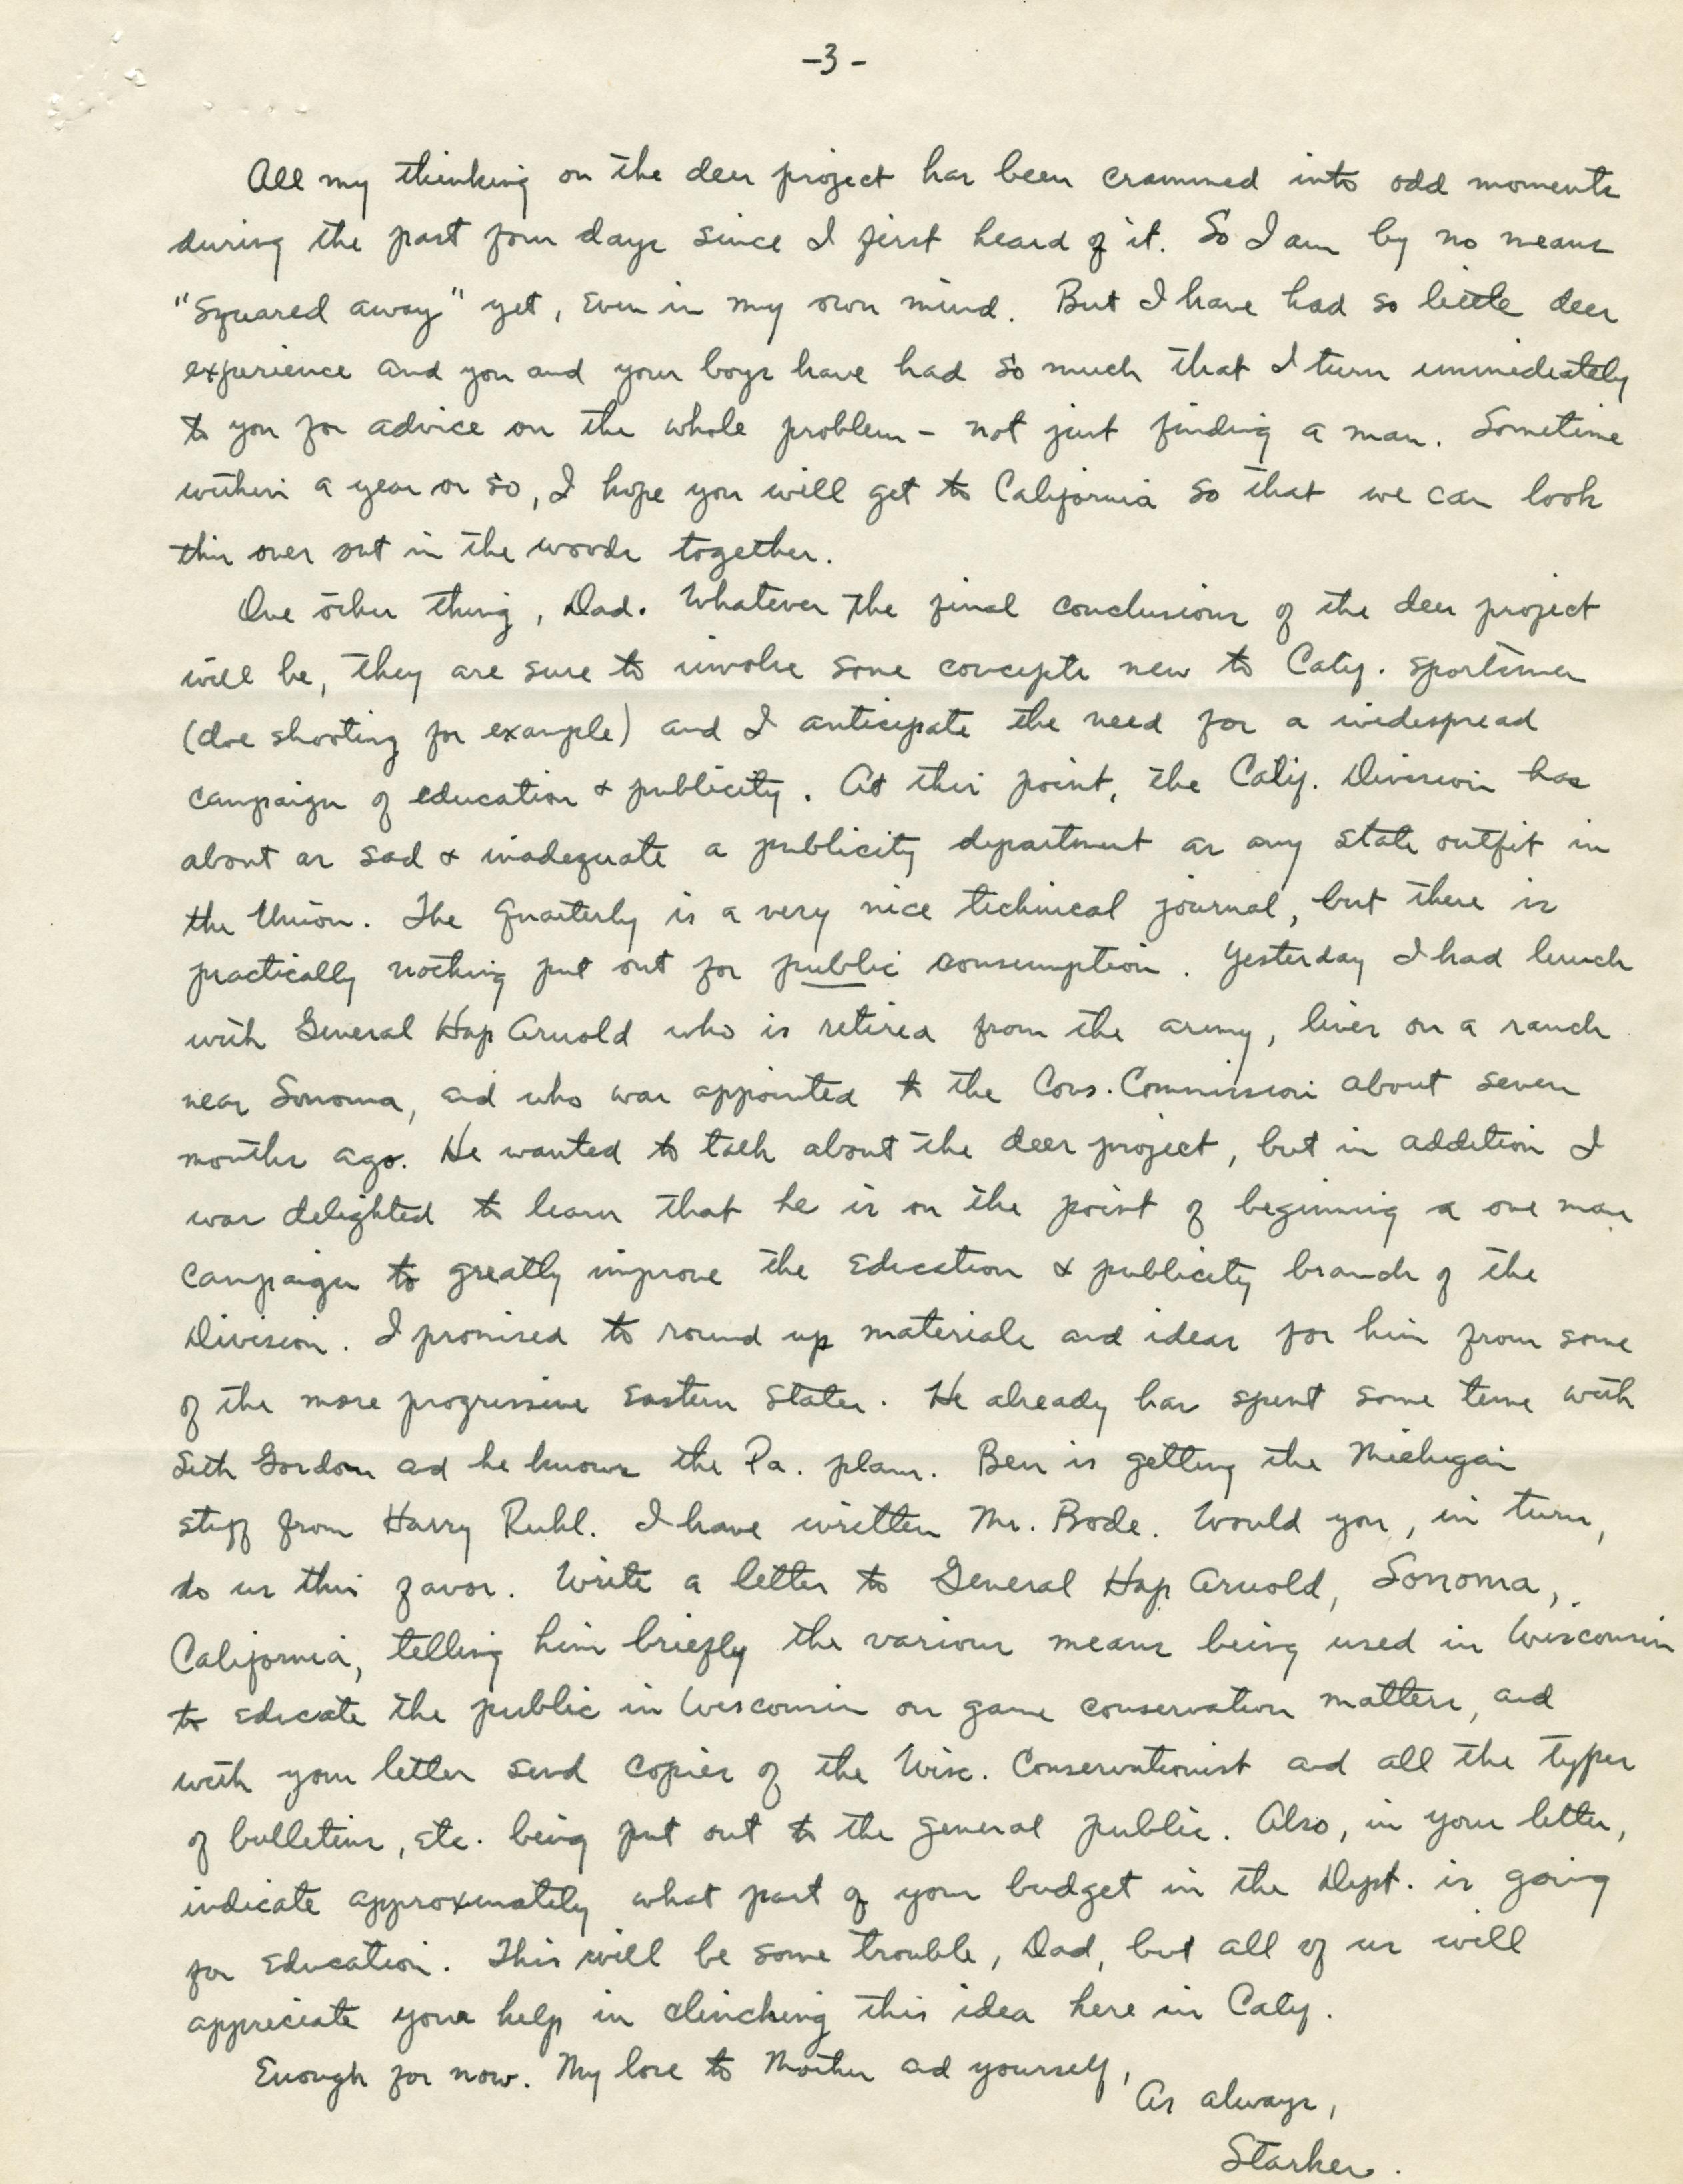 -3-
All my thinking on the deer project has been crammed into odd moments
during the past four days since I first heard of it. So I am by no means
"squared away" yet, even in my own mind. But I have had so little deer
experience and you and your boys have had so much that I turn immediately
to you for advice on the whole problem - not just finding a man. Sometime
within a year or so, I hope you will get to California so that we can look
this over out in the woods together.
One other thing, Dad. Whatever the final conclusions of the deer project
will be, they are sure to involve some concepts new to Calif. sportsmen
(doe shooting for example) and I anticipate the need for a widespread
campaign of education & publicity. At this point, the Calif. Division has
about as sad & inadequate a publicity department as any state outfit in
the Union. The Quarterly is a very nice technical journal, but there is
practically nothing put out for public consumption. Yesterday I had lunch
with General Hap Arnold who is retired from the army, lives on a ranch
near Sonoma, and who was appointed to the Cons. Commission about seven
months ago. He wanted to talk about the deer project, but in addition I
was delighted to learn that he is on the point of beginning a one man
campaign to greatly improve the education & publicity branch of the
Division. I promised to round up materials and ideas for him from some
of the more progressive eastern states. He already has spent some time with
Seth Gordon and he knows the Pa. plan. Ben is getting the Michigan
stuff from Harry Ruhl. I have written Mr. Bode. Would you, in turn,
do us this favor. Write a letter to General Hap Arnold, Sonoma,
California, telling him briefly the various means being used in Wisconsin
to educate the public in Wisconsin on game conservation matters, and
with your letter send copies of the Wisc. Conservationist and all the types
of bulletins, etc. being put out to the general public. Also, in your letter,
indicate approximately what part of your budget in the Dept. is going
for education. This will be some trouble, Dad, but all of us will
appreciate your help in clinching this idea here in Calif.
Enough for now. My love to Mother and yourself,
As always,
Starker.